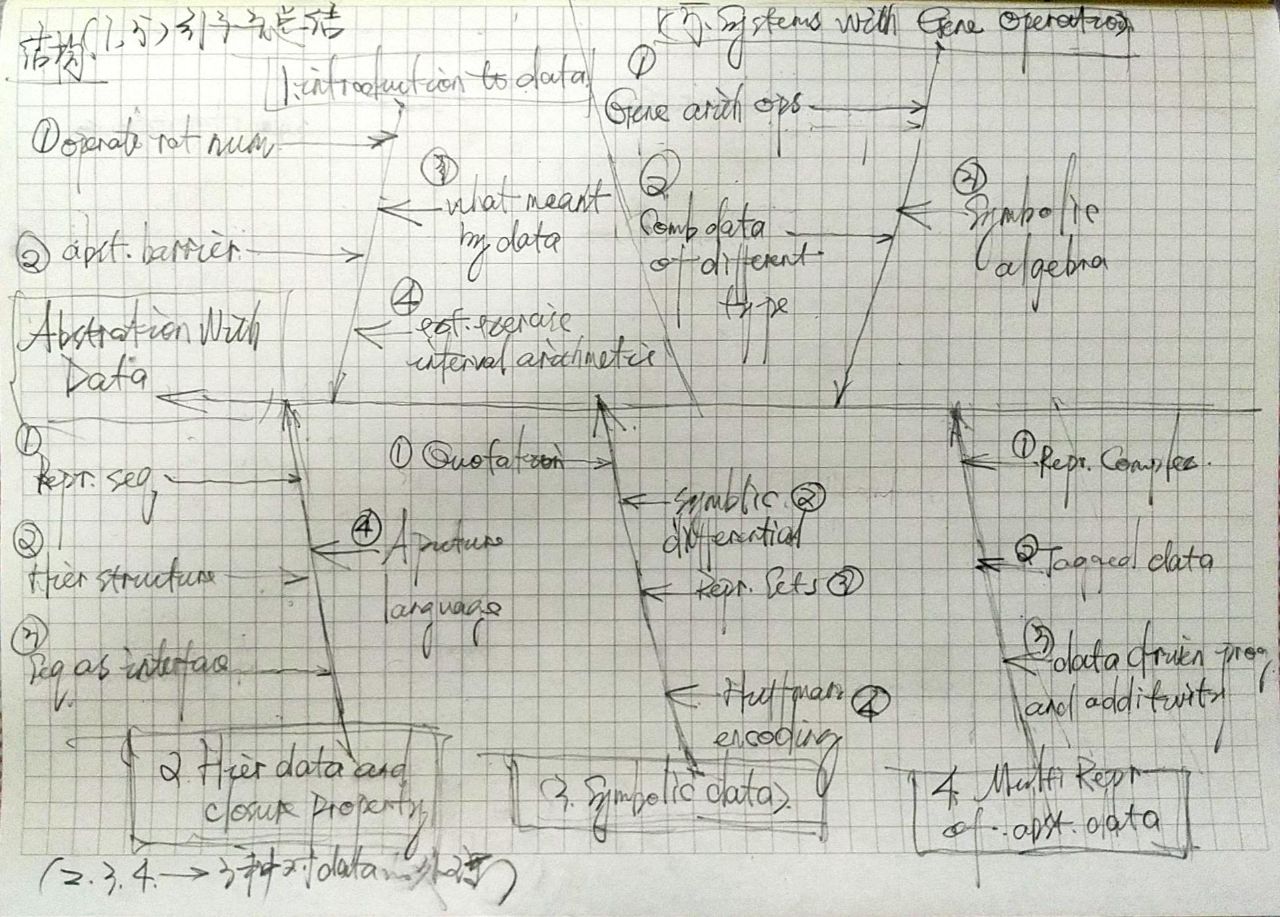 结构(1,5)引子与总结
1. introduction to data
① operate rat num
② abst. barrier
③ what meant
by data
④ ext. exercise
interval arithmetic
5. Systems with Gene operation
①
Gene arith ops
②
Comb data
of different
type
③ Symbolic
algebra
Abstration With
Data
①
Repr. seq
②
Hier structure
③
Seq as interface
④ A picture
language
2. Hier data and
closure property
① Quotation
Symblic ②
differential
Repr. Sets ③
Huffman ④
encoding
3. Symbolic data
① Repr. Complex.
② Tagged data
③ data driven prog
and additivity
4. Multi Repr
of abst. data
(2.3.4. → 3种对data